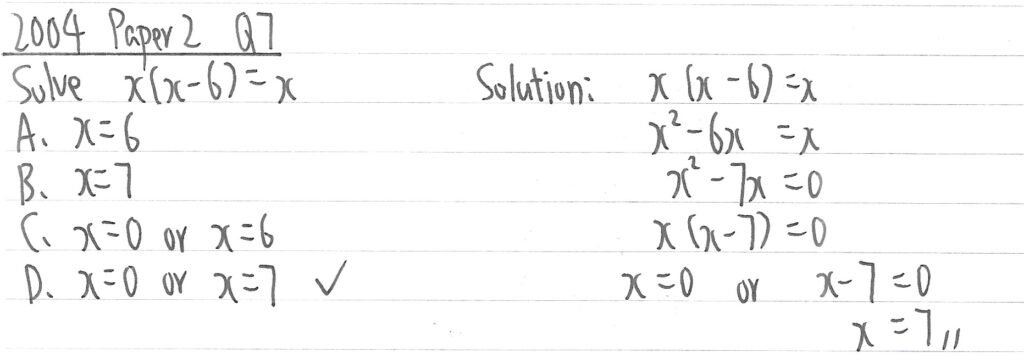 2004 Paper 2 Q7
Solve x(x-6)=x
A. x=6
B. x=7
C. x=0 or x=6
D. x=0 or x=7 ✓
Solution: x(x-6)=x
x²-6x =x
x²-7x =0
x(x-7)=0
x=0 or x-7=0
x=7,,